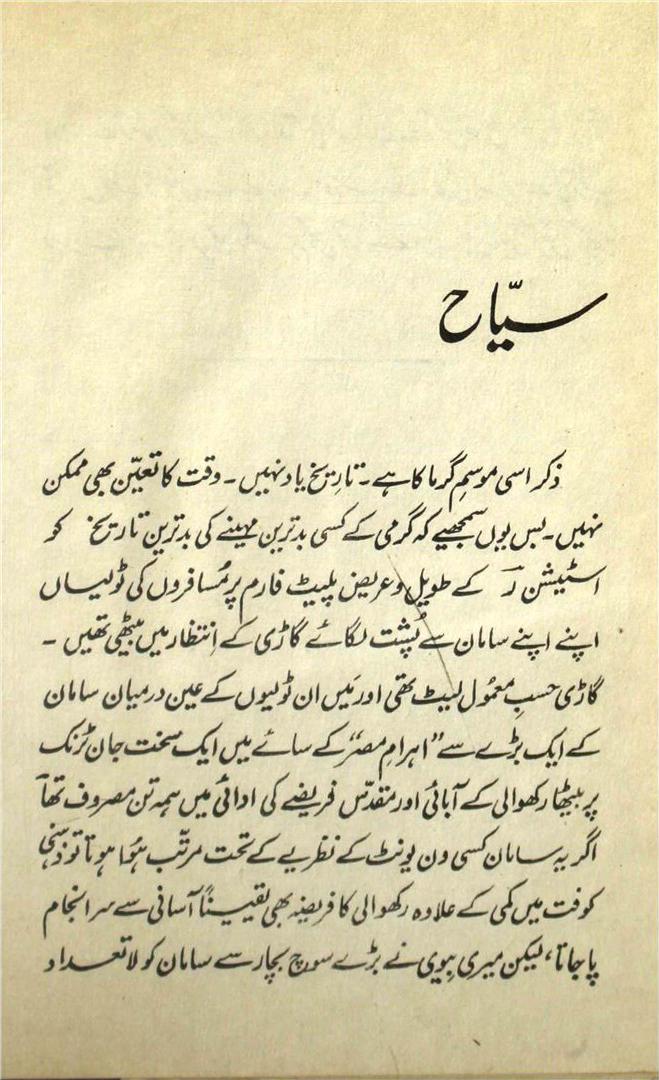 سیّاح
ذکر اسی موسمِ گرما کا ہے۔ تاریخ یاد نہیں۔ وقت کا تعیّن بھی ممکن
نہیں۔ بس یوں سمجھیے کہ گرمی کے کسی بدترین مہینے کی بدترین تاریخ کو
اسٹیشن رؔ کے طویل و عریض پلیٹ فارم پر مُسافروں کی ٹولیاں
اپنے اپنے سامان سے پُشت لگائے گاڑی کے اِنتظار میں بیٹھی تھیں۔
گاڑی حسبِ معمُول لیٹ تھی اور مَیں ان ٹولیوں کے عین درمیان سامان
کے ایک بڑے سے "اہرامِ مصر" کے سائے میں ایک سخت جان ٹرنک
پر بیٹھا رکھوالی کے آبائی اور مقدّس فریضے کی ادائی میں ہمہ تن مصروف تھا۔
اگر یہ سامان کسی ون یونٹ کے نظریے کے تحت مرتّب ہُوا ہوتا تو ذہنی
کوفت میں کمی کے علاوہ رکھوالی کا فریضہ بھی یقیناً آسانی سے سرانجام
پا جاتا، لیکن میری بیوی نے بڑے سوچ بچار سے سامان کو لاتعداد